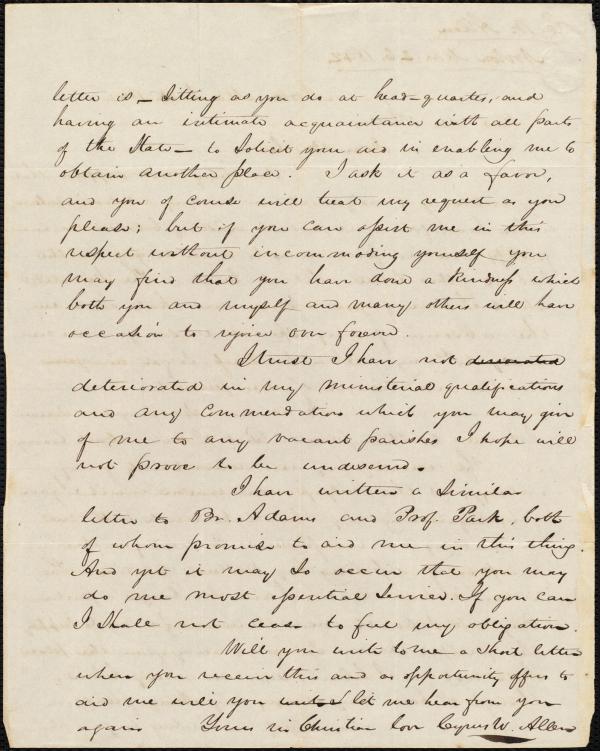 letter is – sitting as you do at head-quarters, and
having an intimate acquaintance with all parts
of the State – to Solicit your aid in enabling me to
obtain another place. I ask it as a favor,
and you of course will treat my request as you
please; but if you can assist me in this
respect without incommoding yourself you
may find that you have done a kindness which
both you and myself and many others will have
occasion to rejoice over forever.
I trust I have not
deteriorated in my ministerial qualifications
and any commendations which you may give
of me to any vacant parishes I hope will
not prove to be undeserved.
I have written a Similar
letter to Br. Adams and Prof. Park, both
of whom promise to aid me in this thing.
And yet it may so occur that you may
do me most essential service. If you can
I Shall not cease to feel my obligation.
Will you write to me a short letter
when you receive this and as opportunity offers to
aid me will you let me hear from you
again Yours in Christian love Cyrus W. Allen